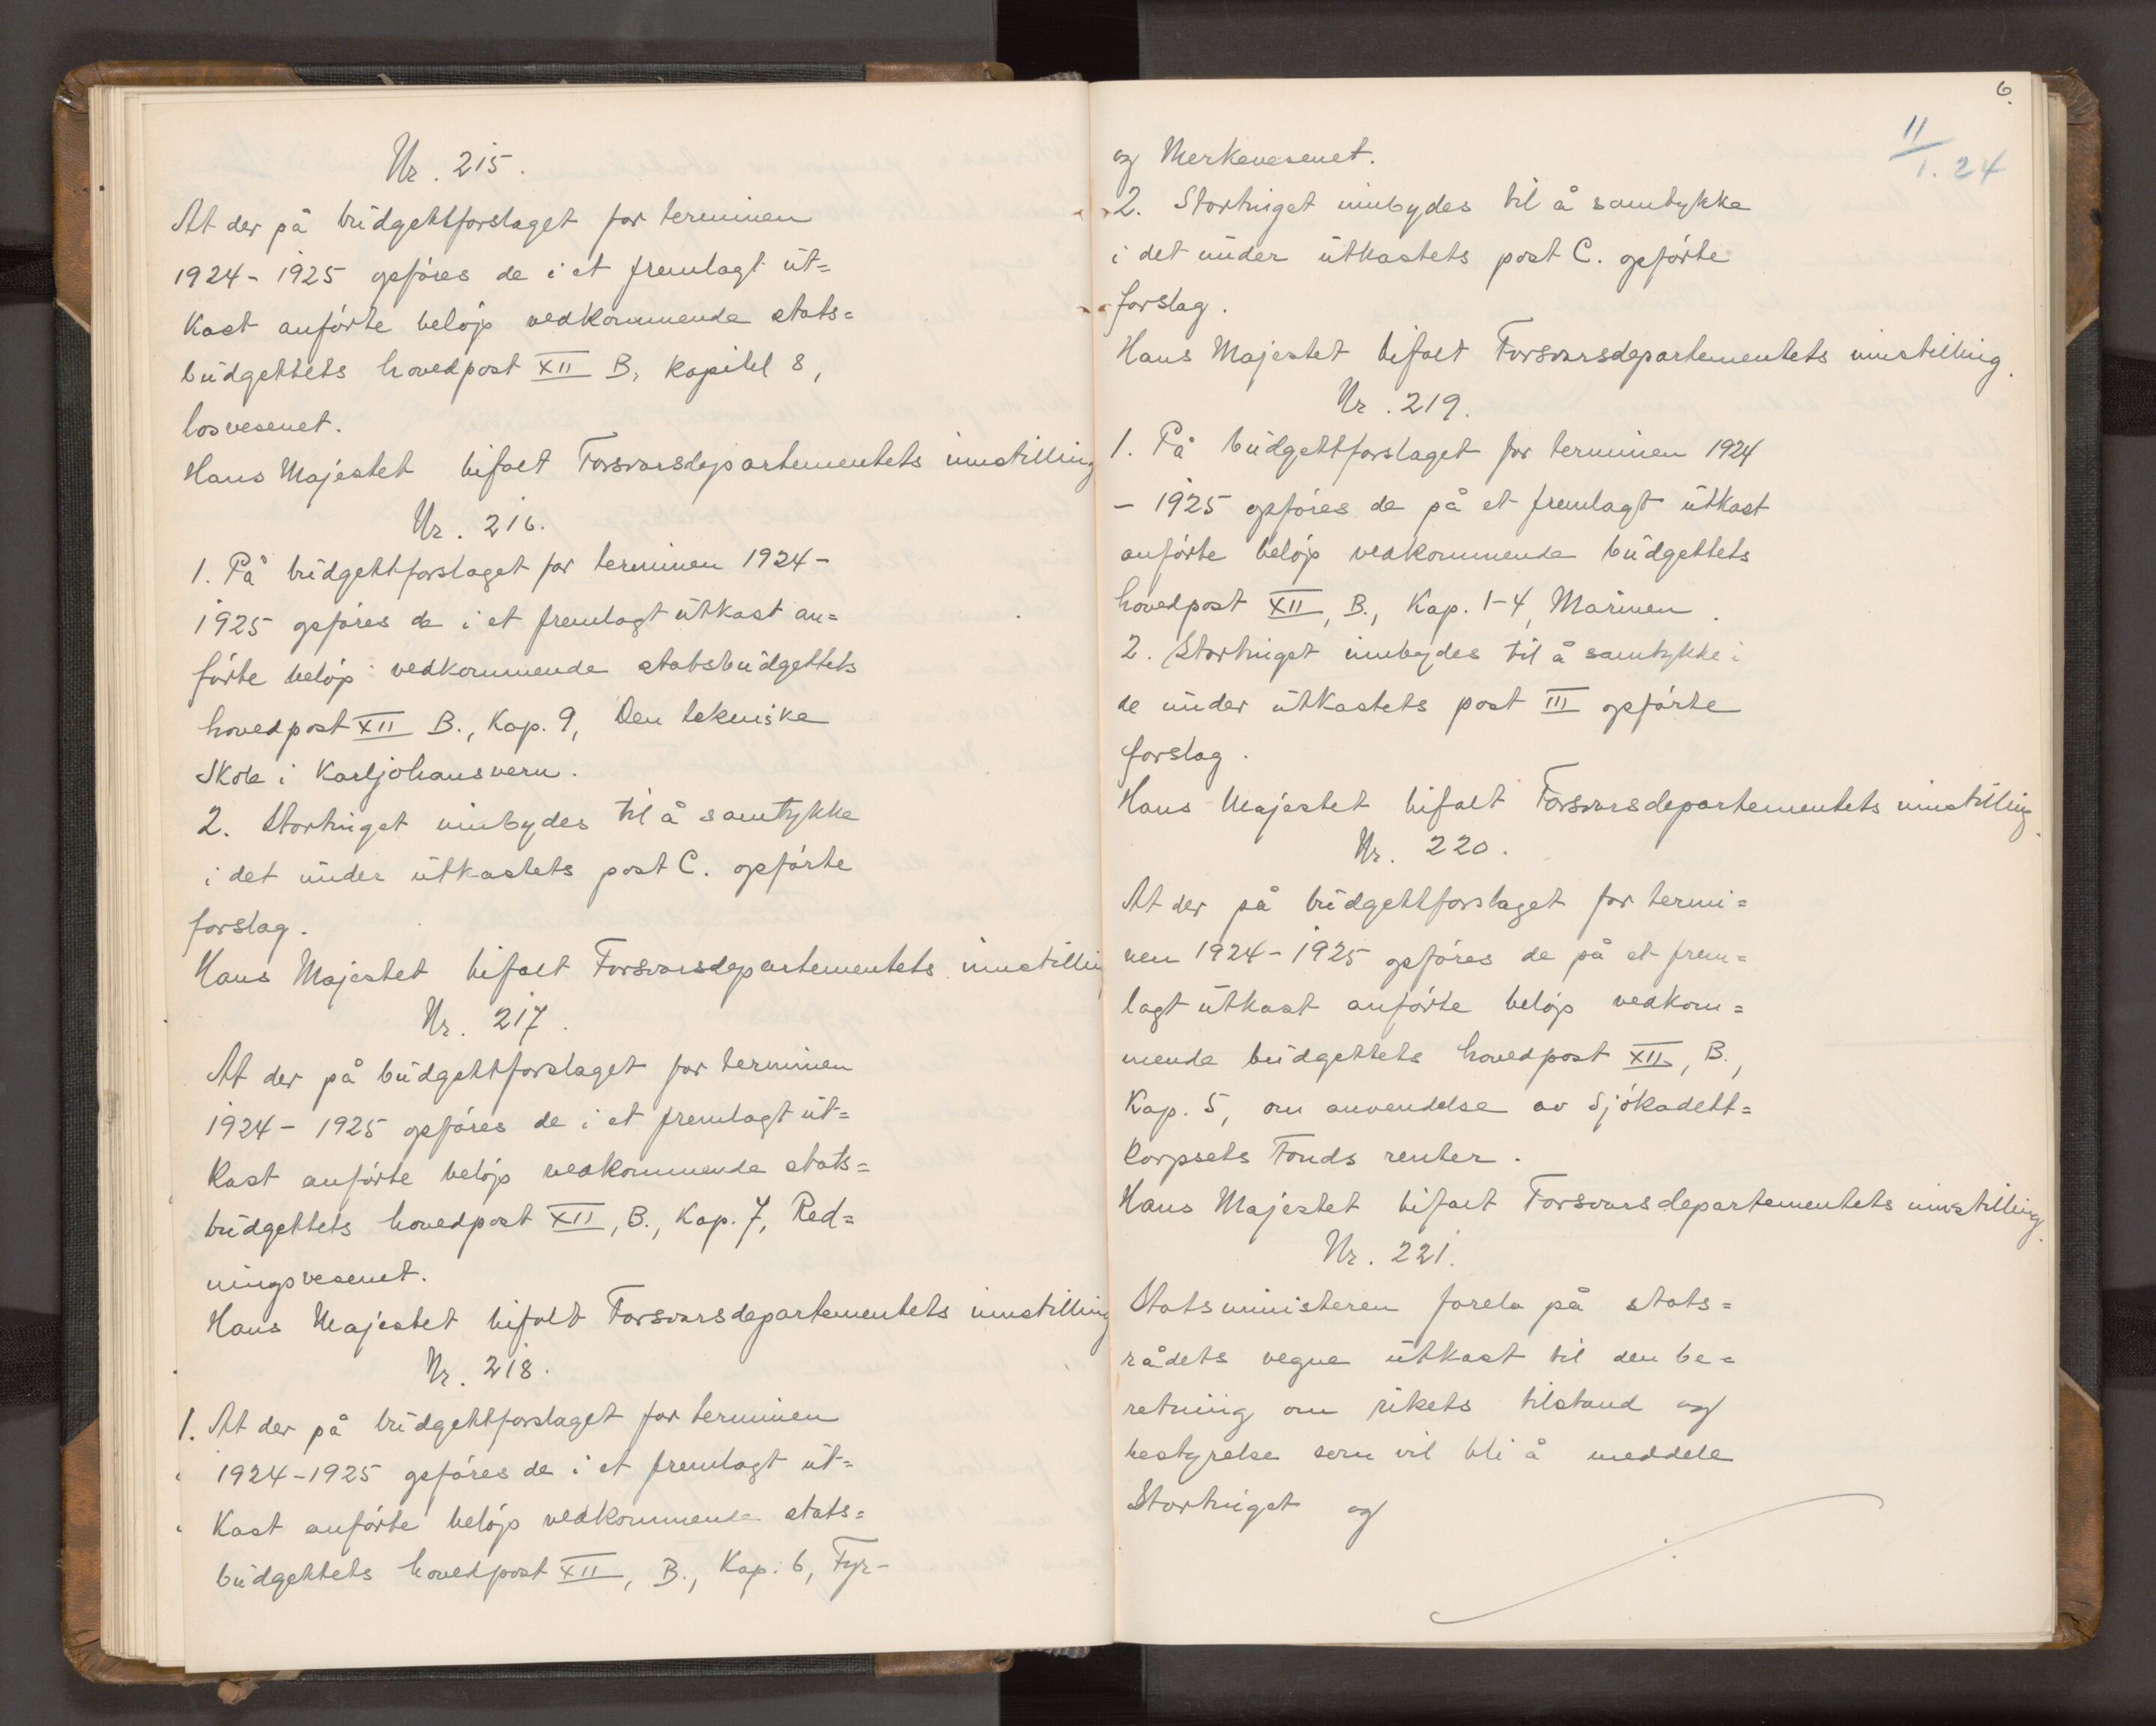 Nr. 215.
At der på budgettforslaget for terminen
1924 - 1925 opføres de i et fremlagt ut=
kast anførte beløp vedkommende stats=
budgettets hovedpost XII B, kapitel 8,
losvesenet.
Hans Majestet bifalt Forsvarsdepartementets innstilling
Nr. 216.
1. På budgettforslaget for terminen 1924 -
1925 opføres de i et fremlagt utkast an=
førte beløp vedkommende statsbudgettets
hovedpost XII B., Kap. 9, Den tekniske
Skole i Karljohansvern.
2. Stortinget innbydes til å samtykke
i det under utkastets post C. opførte
forslag.
Hans Majestet bifalt Forsvarsdepartementets innstilling
Nr. 217.
At der på budgettforslaget for terminen
1924 - 1925 opføres de i et fremlagt ut=
kast anførte beløp vedkommende stats=
budgettets hovedpost XII, B., Kap. 7, Red=
ningsvesenet.
Hans Majestet bifalt Forsvarsdepartementets innstilling
Nr. 218.
1. At der på budgettforslaget for terminen
1924-1925 opføres de i et fremlagt ut=
kast anførte beløp vedkommende stats=
budgettets hovedpost XII, B., Kap. 6, Fyr-
6.
11/1. 24
og Merkevesenet.
2. Stortinget innbydes til å samtykke
i det under utkastets post C. opførte
forslag.
Hans Majestet bifalt Forsvarsdepartementets innstilling.
Nr. 219.
1. På budgettforslaget for terminen 1924
- 1925 opføres de på et fremlagt utkast
anførte beløp vedkommende budgettets
hovedpost XII, B., Kap. 1-4, Marinen.
2. Stortinget innbydes til å samtykke i
de under utkastets post III opførte
forslag.
Hans Majestet bifalt Forsvarsdepartementets innstilling.
Nr. 220.
At der på budgettforslaget for termi=
nen 1924 - 1925 opføres de på et frem=
lagt utkast anførte beløp vedkom=
mende budgettets hovedpost XII, B.,
Kap. 5, om anvendelse av Sjøkadett=
korpsets Fonds renter.
Hans Majestet bifalt Forsvarsdepartementets innstilling.
Nr. 221.
Statsministeren forela på stats=
rådets vegne utkast til den be=
retning om rikets tilstand og
bestyrelse som vil bli å meddele
Stortinget og